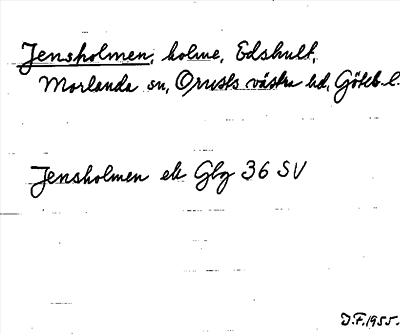 Jensholmen, holme, Edshult,
Morlanda sn, Orusts västra hd, Göteb. l.
Jensholmen ek Gbg 36 SV
J.F. 1955.